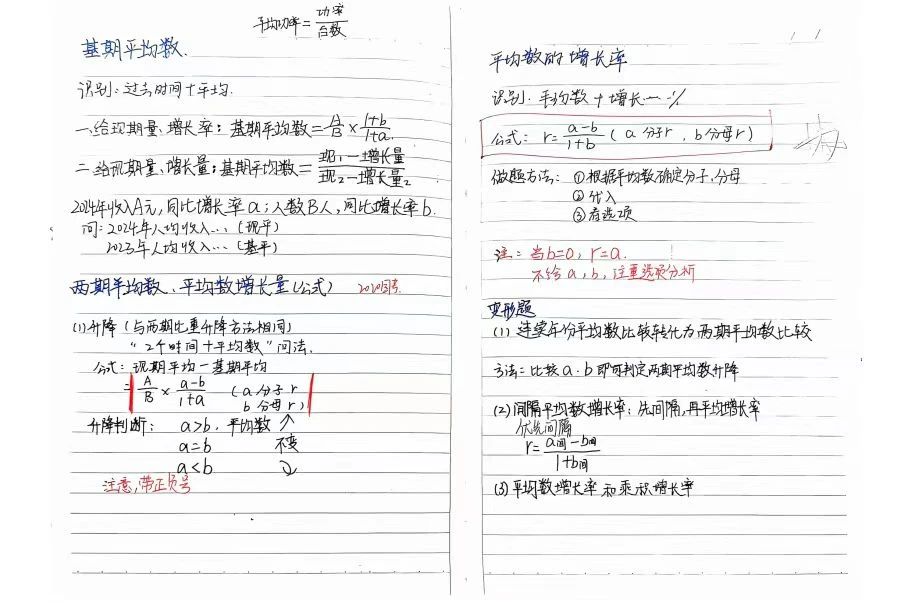 平均功率=功率/台数
基期平均数.
识别:过去时间+平均.
一.给现期量、增长率:基期平均数=A/B×(1+b)/(1+a)
二.给现期量、增长量:基期平均数=(现₁-增长量)/(现₂-增长量₂)
2024年收入A元,同比增长率a;人数B人,同比增长率b.
问:2024年人均收入…(现平)
2023年人均收入…(基平)
两期平均数、平均数增长量(公式) 2020国考
(1)升降(与两期比重升降方法相同)
“2个时间+平均数”问法.
公式:现期平均-基期平均
=A/B×(a-b)/(1+a) (a分子r
b分母r)
升降判断: a>b,平均数↗
a=b 不变
a<b ↘
注意,带正负号
平均数的增长率
识别:平均数+增长…%
公式: r=(a-b)/(1+b) (a分子r,b分母r)
做题方法: ①根据平均数确定分子、分母
②代入
③看选项
注:当b=0,r=a.
不给a,b,注重选项分析
变形题
(1)连续年份平均数比较转化为两期平均数比较
方法=比较a、b即可判定两期平均数升降
(2)间隔平均数增长率:先间隔,再平均增长率
优先间隔
r=(a间-b间)/(1+b间)
(3)平均数增长率和乘积增长率